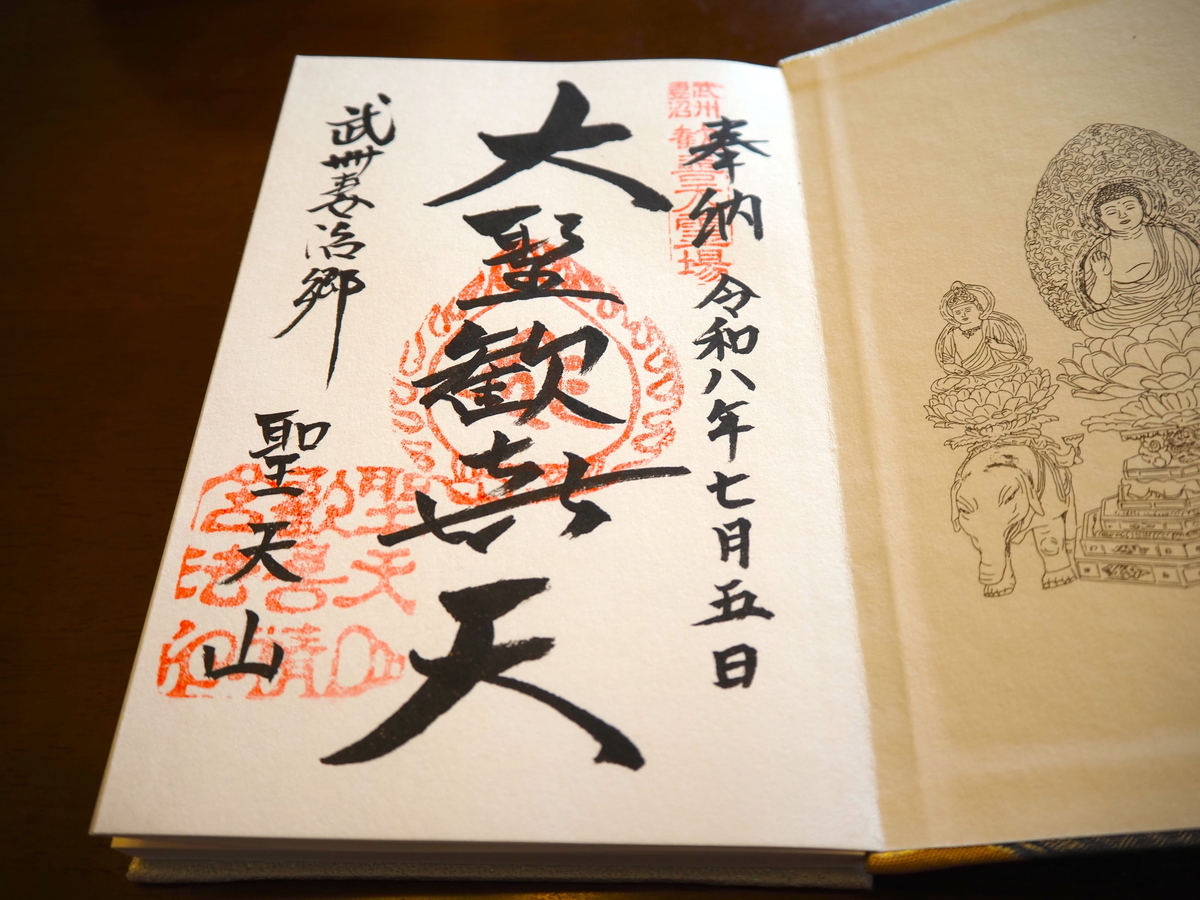 武州
妻沼
歓喜天霊場
奉納 令和八年七月五日
大聖歓㐂天
武州妻沼郷
聖天山
聖天山
歓喜精
舎法印